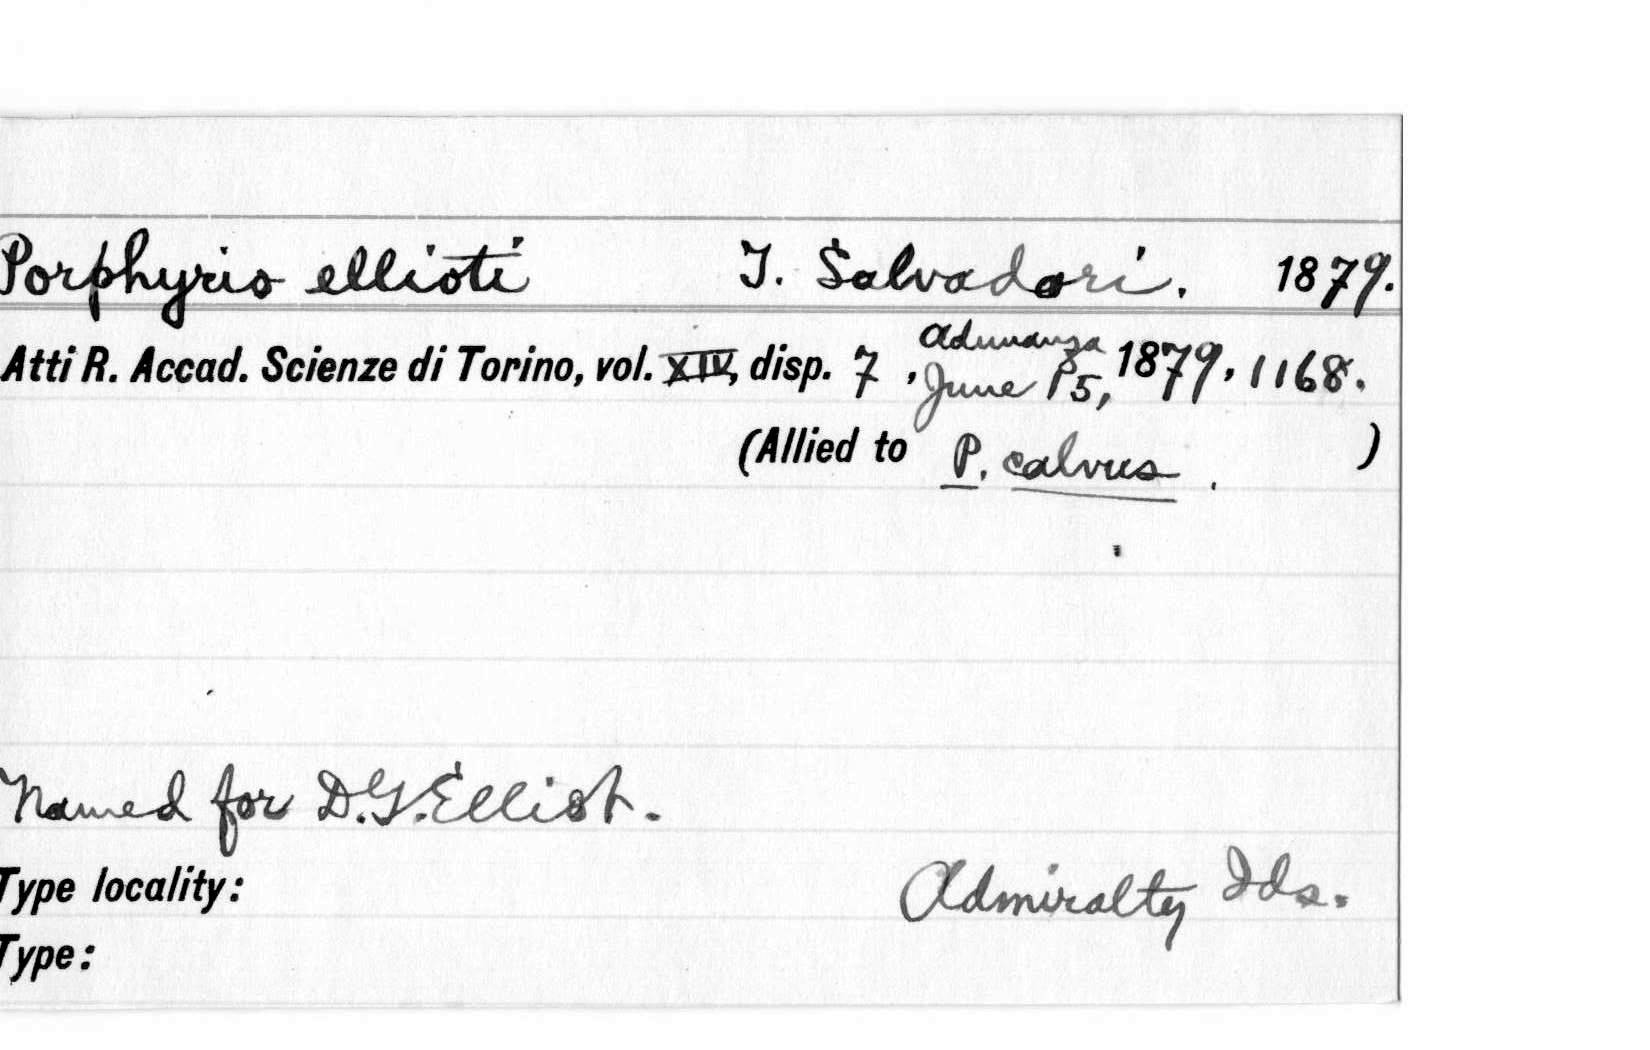 Porphyrio ellioti T. Salvadori. 1879.
Atti R. Accad. Scienze di Torino, vol. XIV, disp. 7, Adunanza June 15, 1879, 1168.
(Allied to P. calvus. )
Named for D.G. Elliot.
Type locality: Admiralty Ids.
Type: